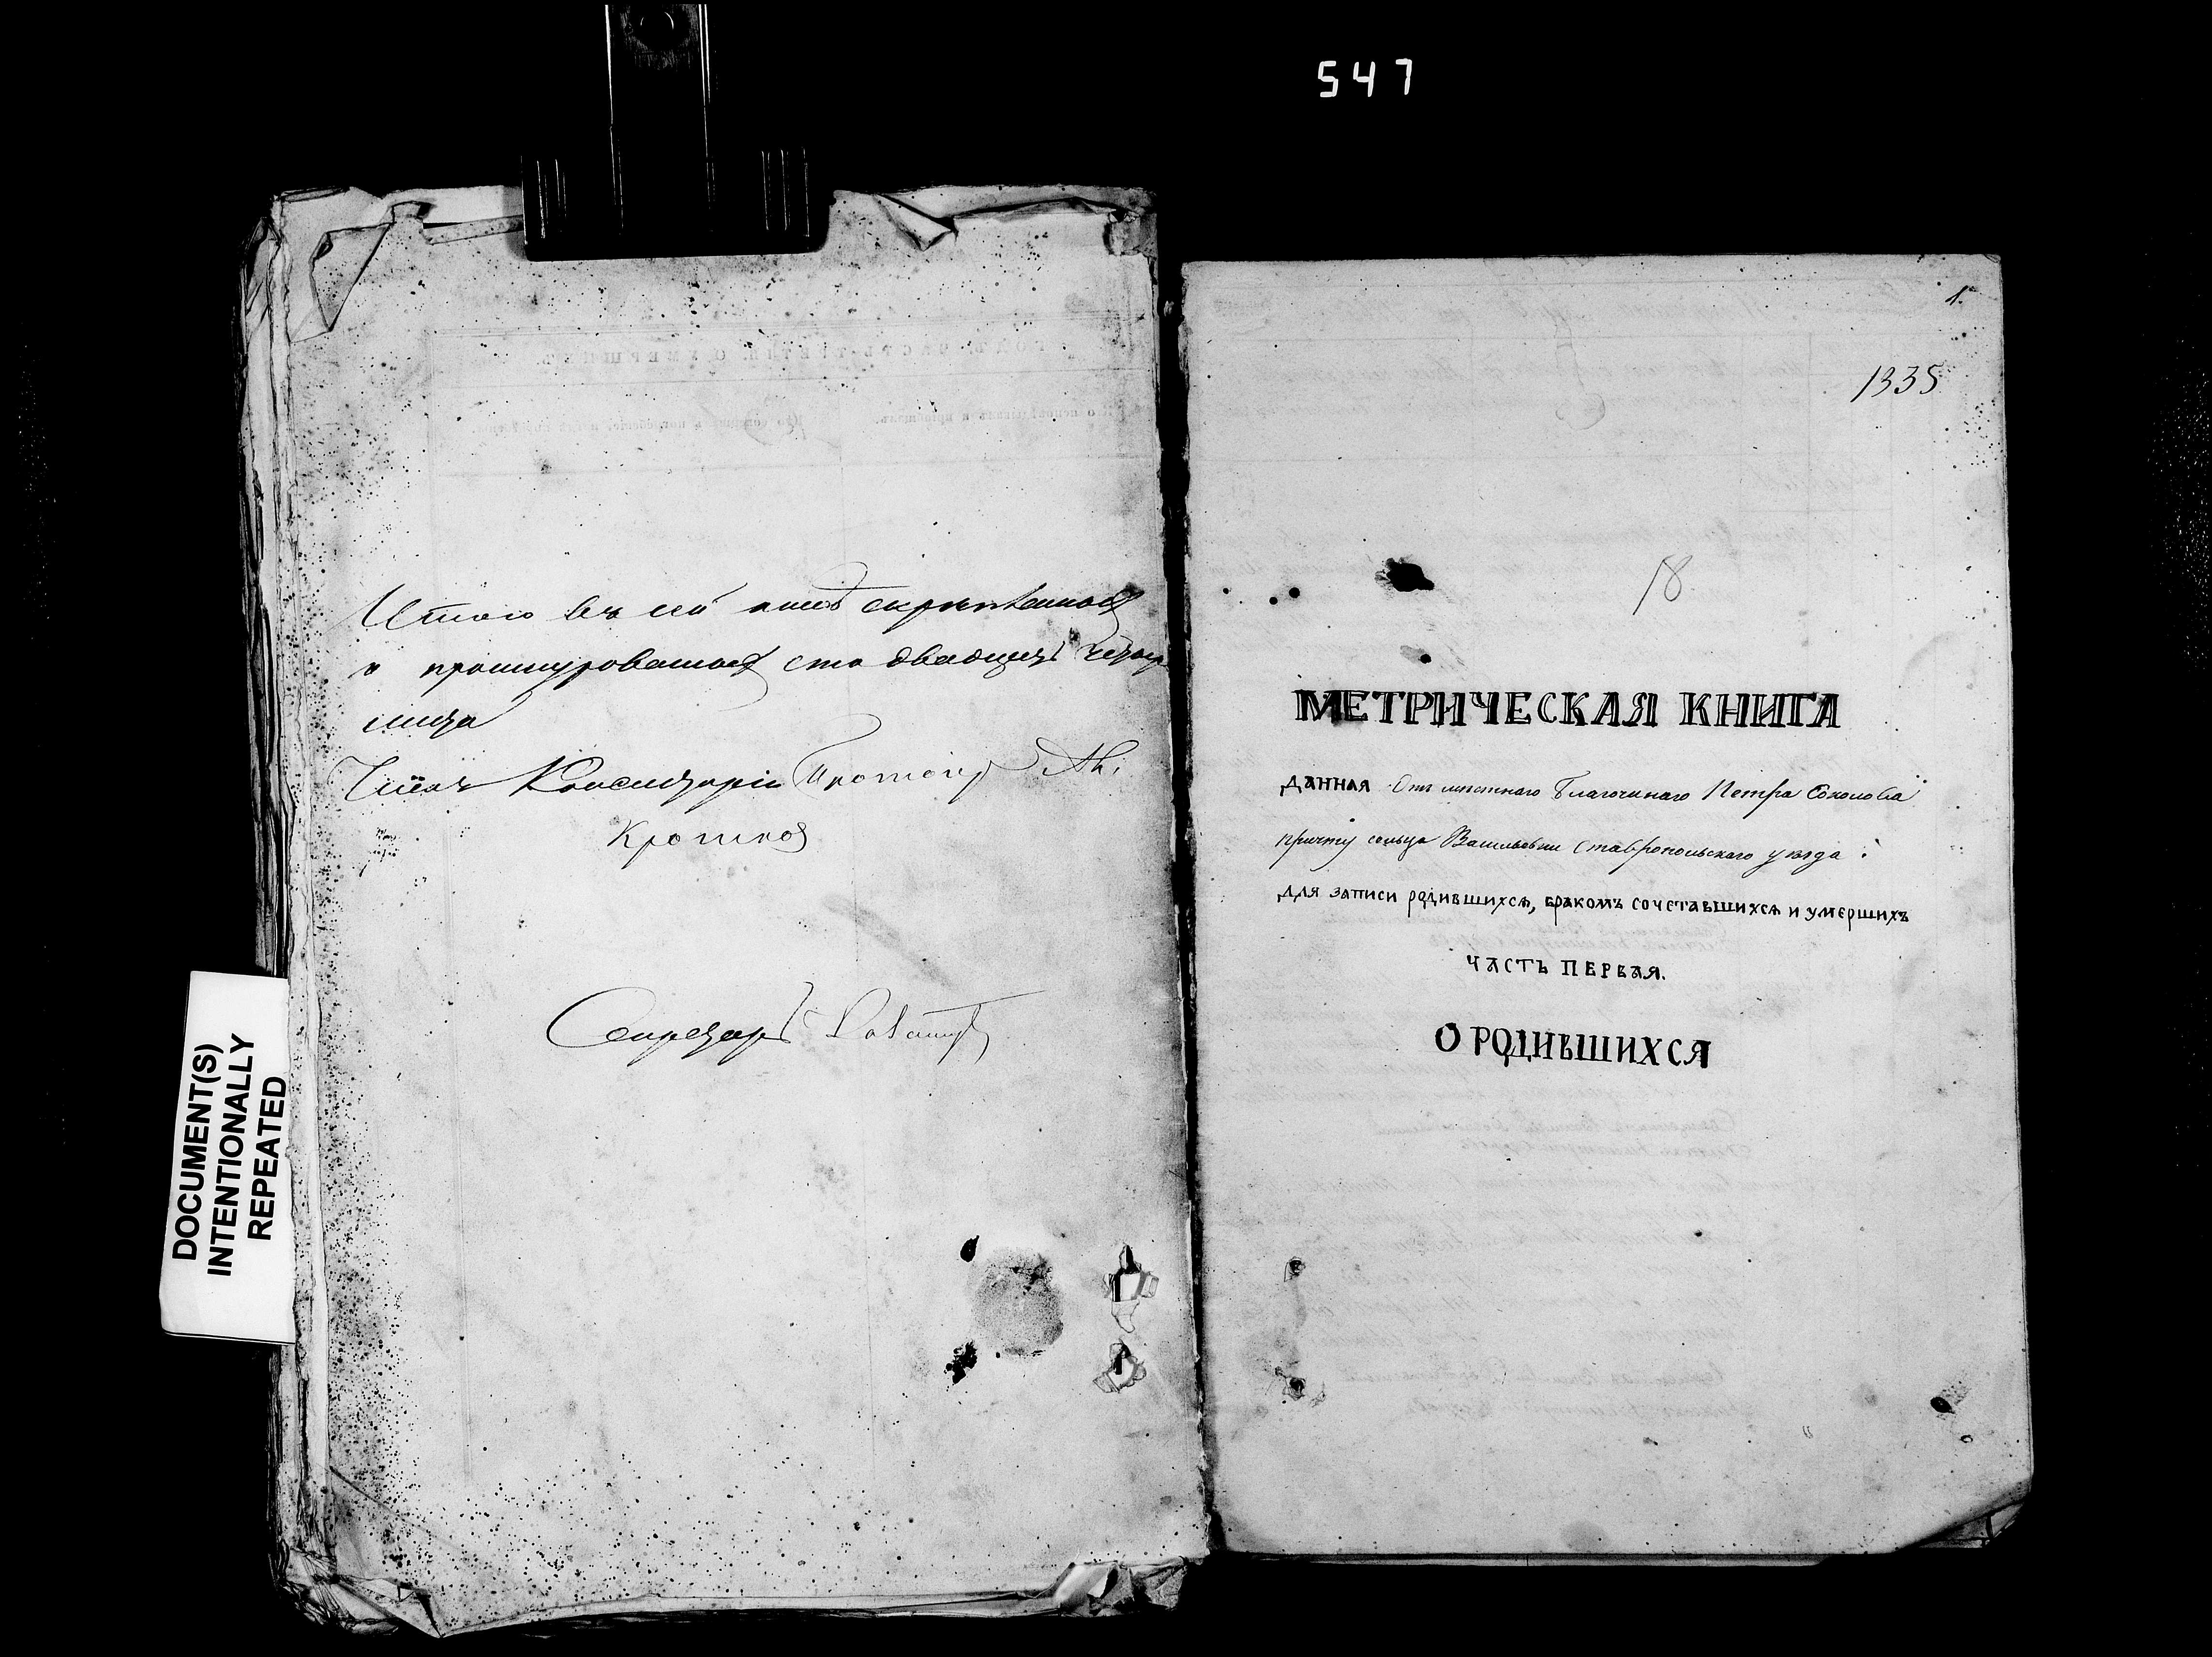 547
Итого въ сей книгѣ скрѣпленной
и прошнурованной сто двадцать четыре
листа
Членъ Консисторіи Протоіер
Кротков
Секретарь
DOCUMENT(S)
INTENTIONALLY
REPEATED
1.
1335
18
МЕТРИЧЕСКАЯ КНИГА
ДАННАЯ Отъ мѣстнаго Благочинаго Петра Соколова
причту сельца Васильевки Ставропольскаго уѣзда:
ДЛЯ ЗАПИСИ РОДИВШИХСЯ, БРАКОМЪ СОЧЕТАВШИХСЯ И УМЕРШИХЪ
ЧАСТЬ ПЕРВАЯ.
О РОДИВШИХСЯ